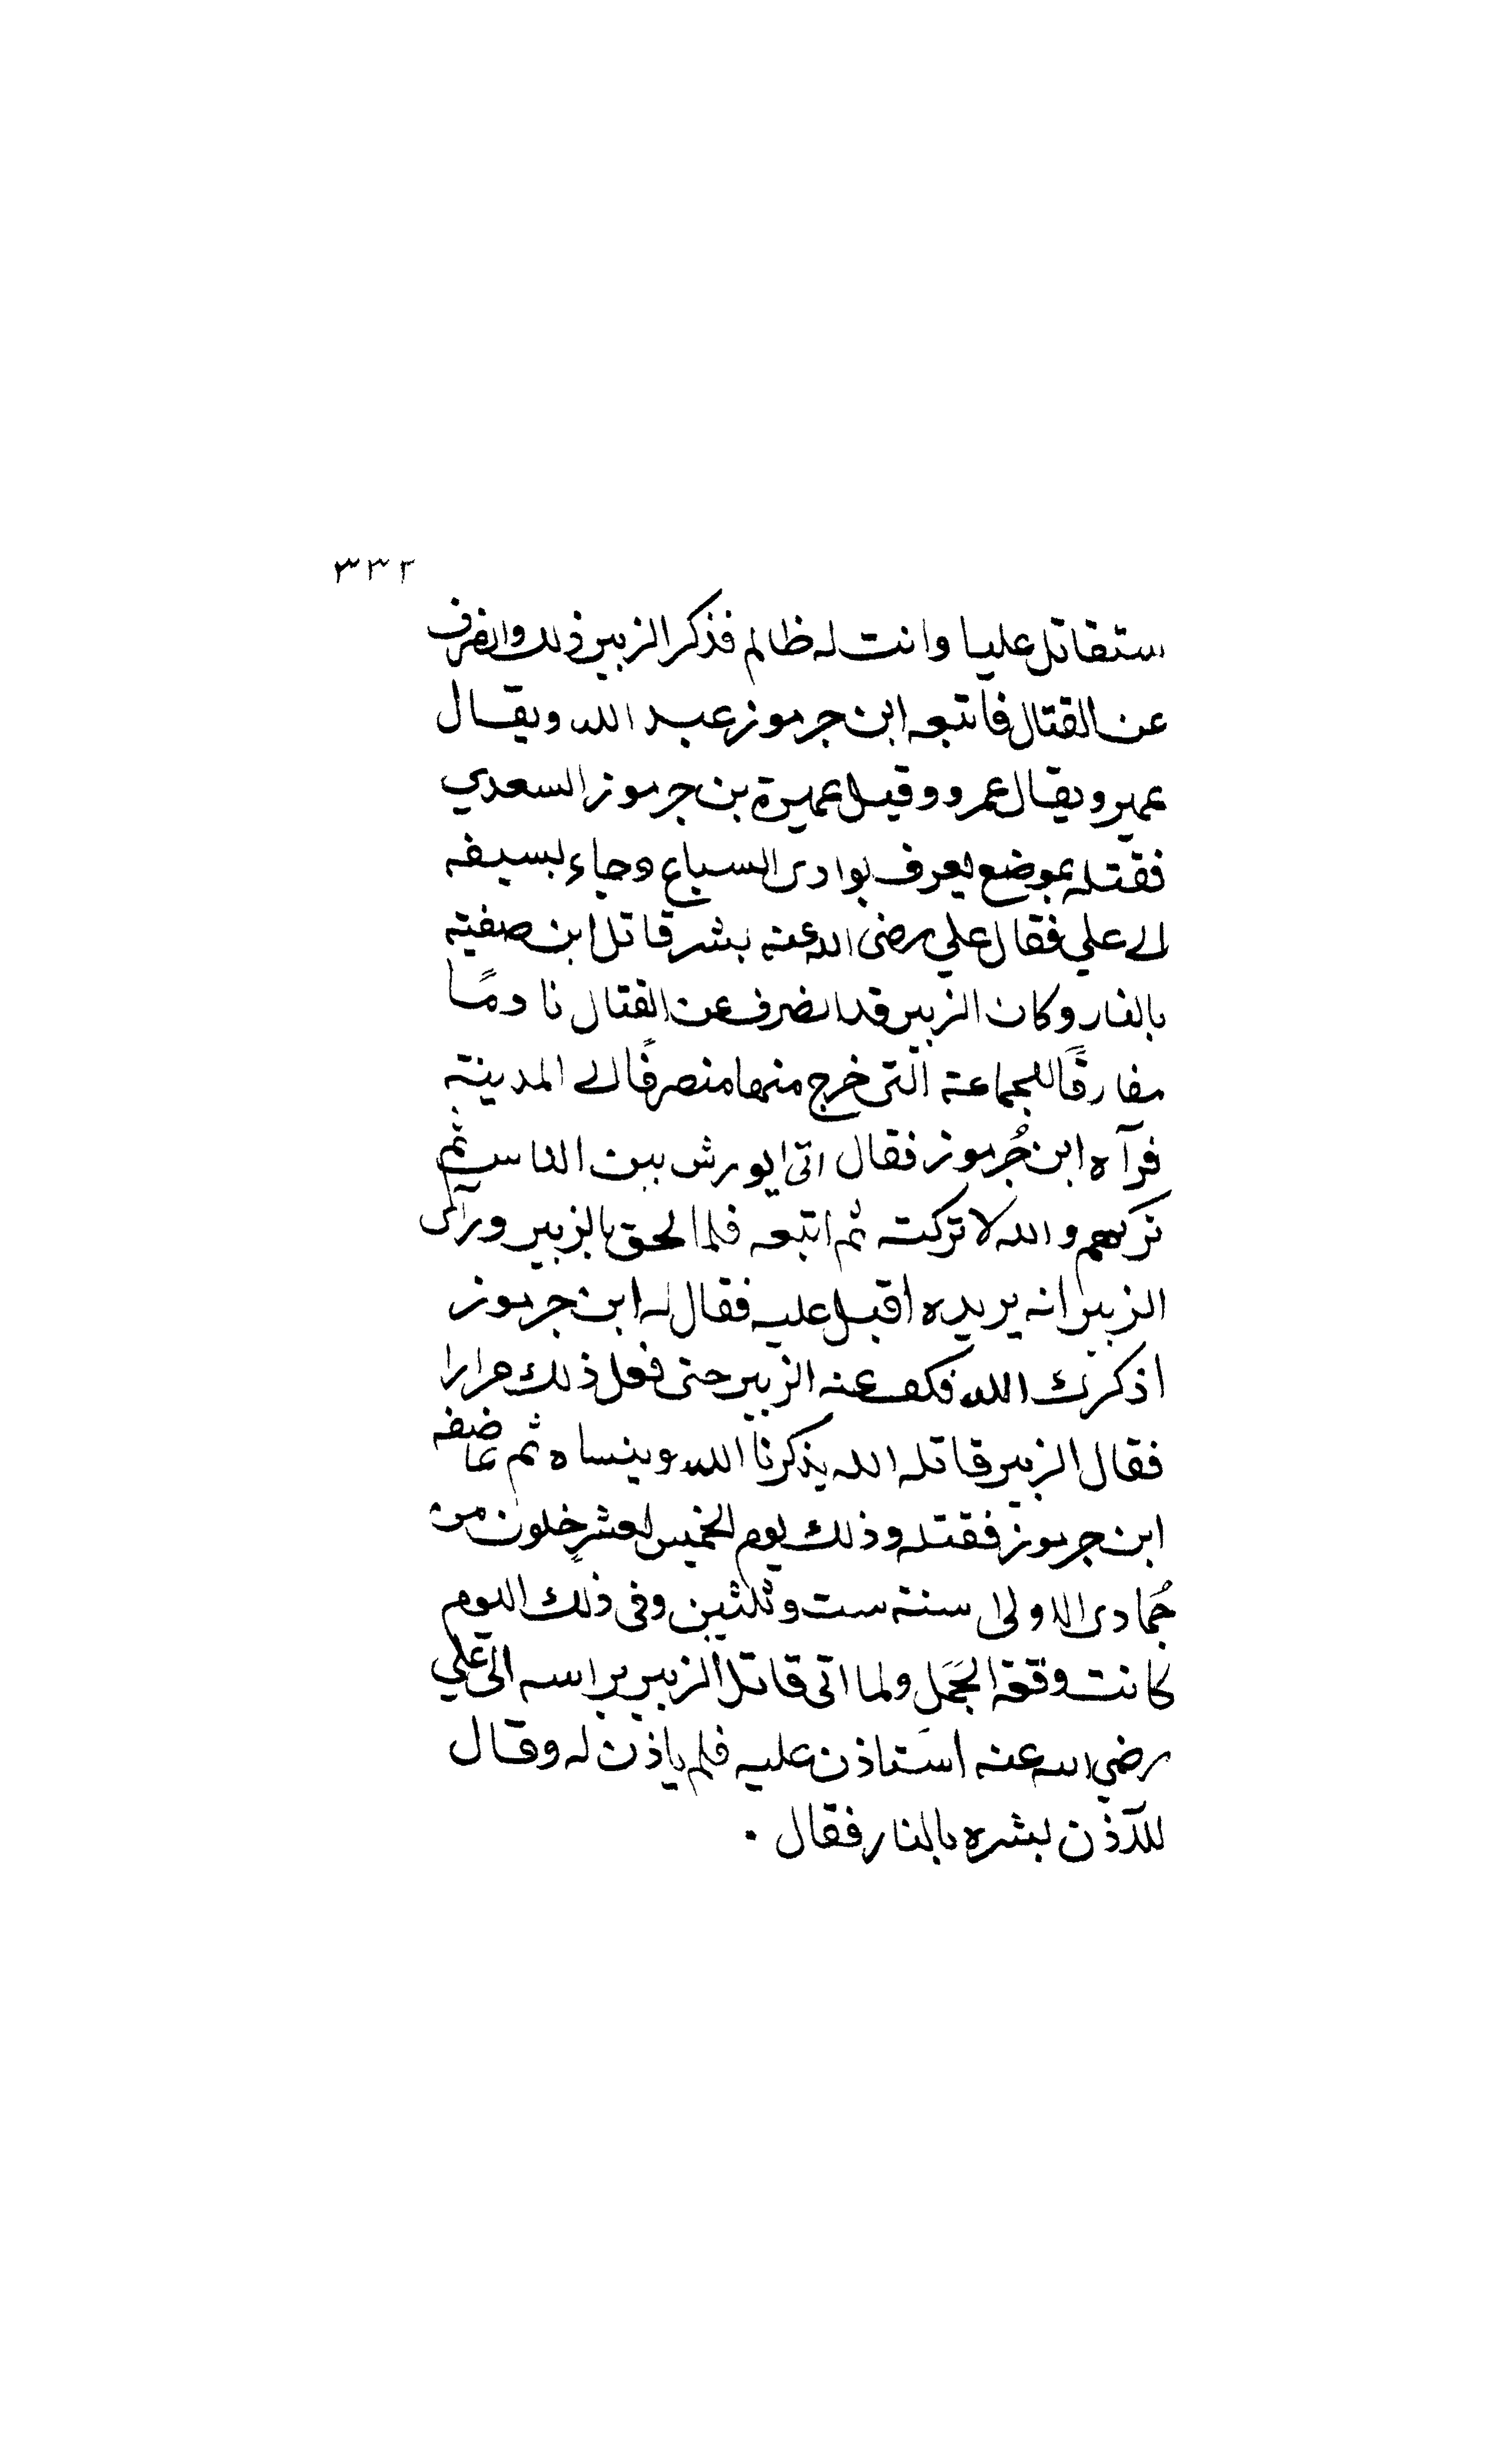 ٣٣٢
ستقاتل عليا وانت له ظالم فذكر الزبير ذلك وانصرف
عن القتال فاتبعه ابن جرموز عبد الله ويقال
عمير ويقال عمرو وقيل عميرة بن جرموز السعدي
فقتله بموضع يعرف بوادى السباع وجاء بسيفه
الى علي فقال علي رضى الله عنه بشر قاتل ابن صفية
بالنار وكان الزبير قد انصرف عن القتال نادمًا
مفارقًا للجماعة التى خرج منها منصرفًا الى المدينة
فرآه ابن جُرموز فقال اتى يورش بين الناس ثم
تركهم والله لا تركته ثم اتبعه فلما لحق بالزبير ورآى
الزبير انه يريده اقبل عليه فقال له ابن جرموز
اذكرك الله فكف عنه الزبير حتى فعل ذلك مرارا
فقال الزبير قاتله الله يذكرنا الله وينساه ثم عاضفه
ابن جرموز فقتله وذلك يوم الخميس لعشر خلون من
جُمادى الاولى سنة ست وثلثين وفى ذلك اليوم
كانت وقعة الجَمَل ولما اتى قاتل الزبير براسه الى علي
رضي الله عنه استاذن عليه فلم ياذن له وقال
للآذن بشره بالنار فقال .